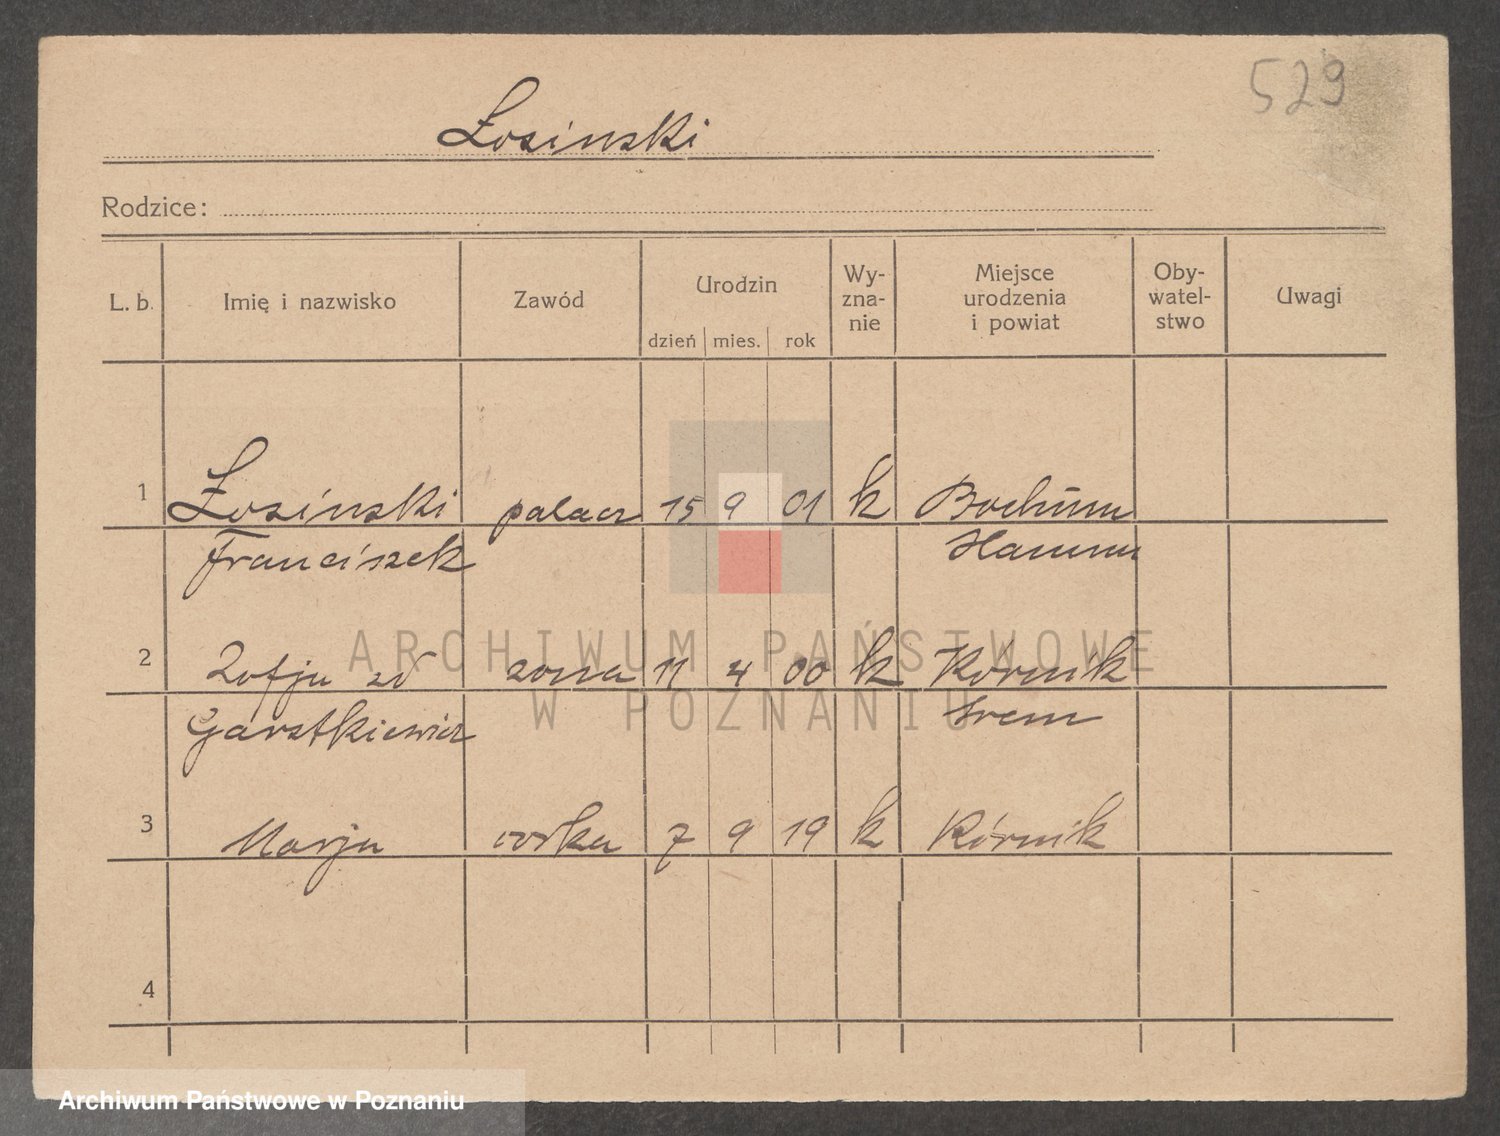 529
Łosinski
Rodzice:
L. b. Imię i nazwisko Zawód Urodzin Wy-zna-nie Miejsce urodzenia i powiat Oby-watel-stwo Uwagi
dzień mies. rok
1 Łosinski palacz 15 9 01 k Bochum
Franciszek Hamm
2 Zofja zd zona 11 4 00 k Kórnik
Garstkiewicz Srem
3 Marja corka 7 9 19 k Kórnik
4
ARCHIWUM PAŃSTWOWE
W POZNANIU
Archiwum Państwowe w Poznaniu